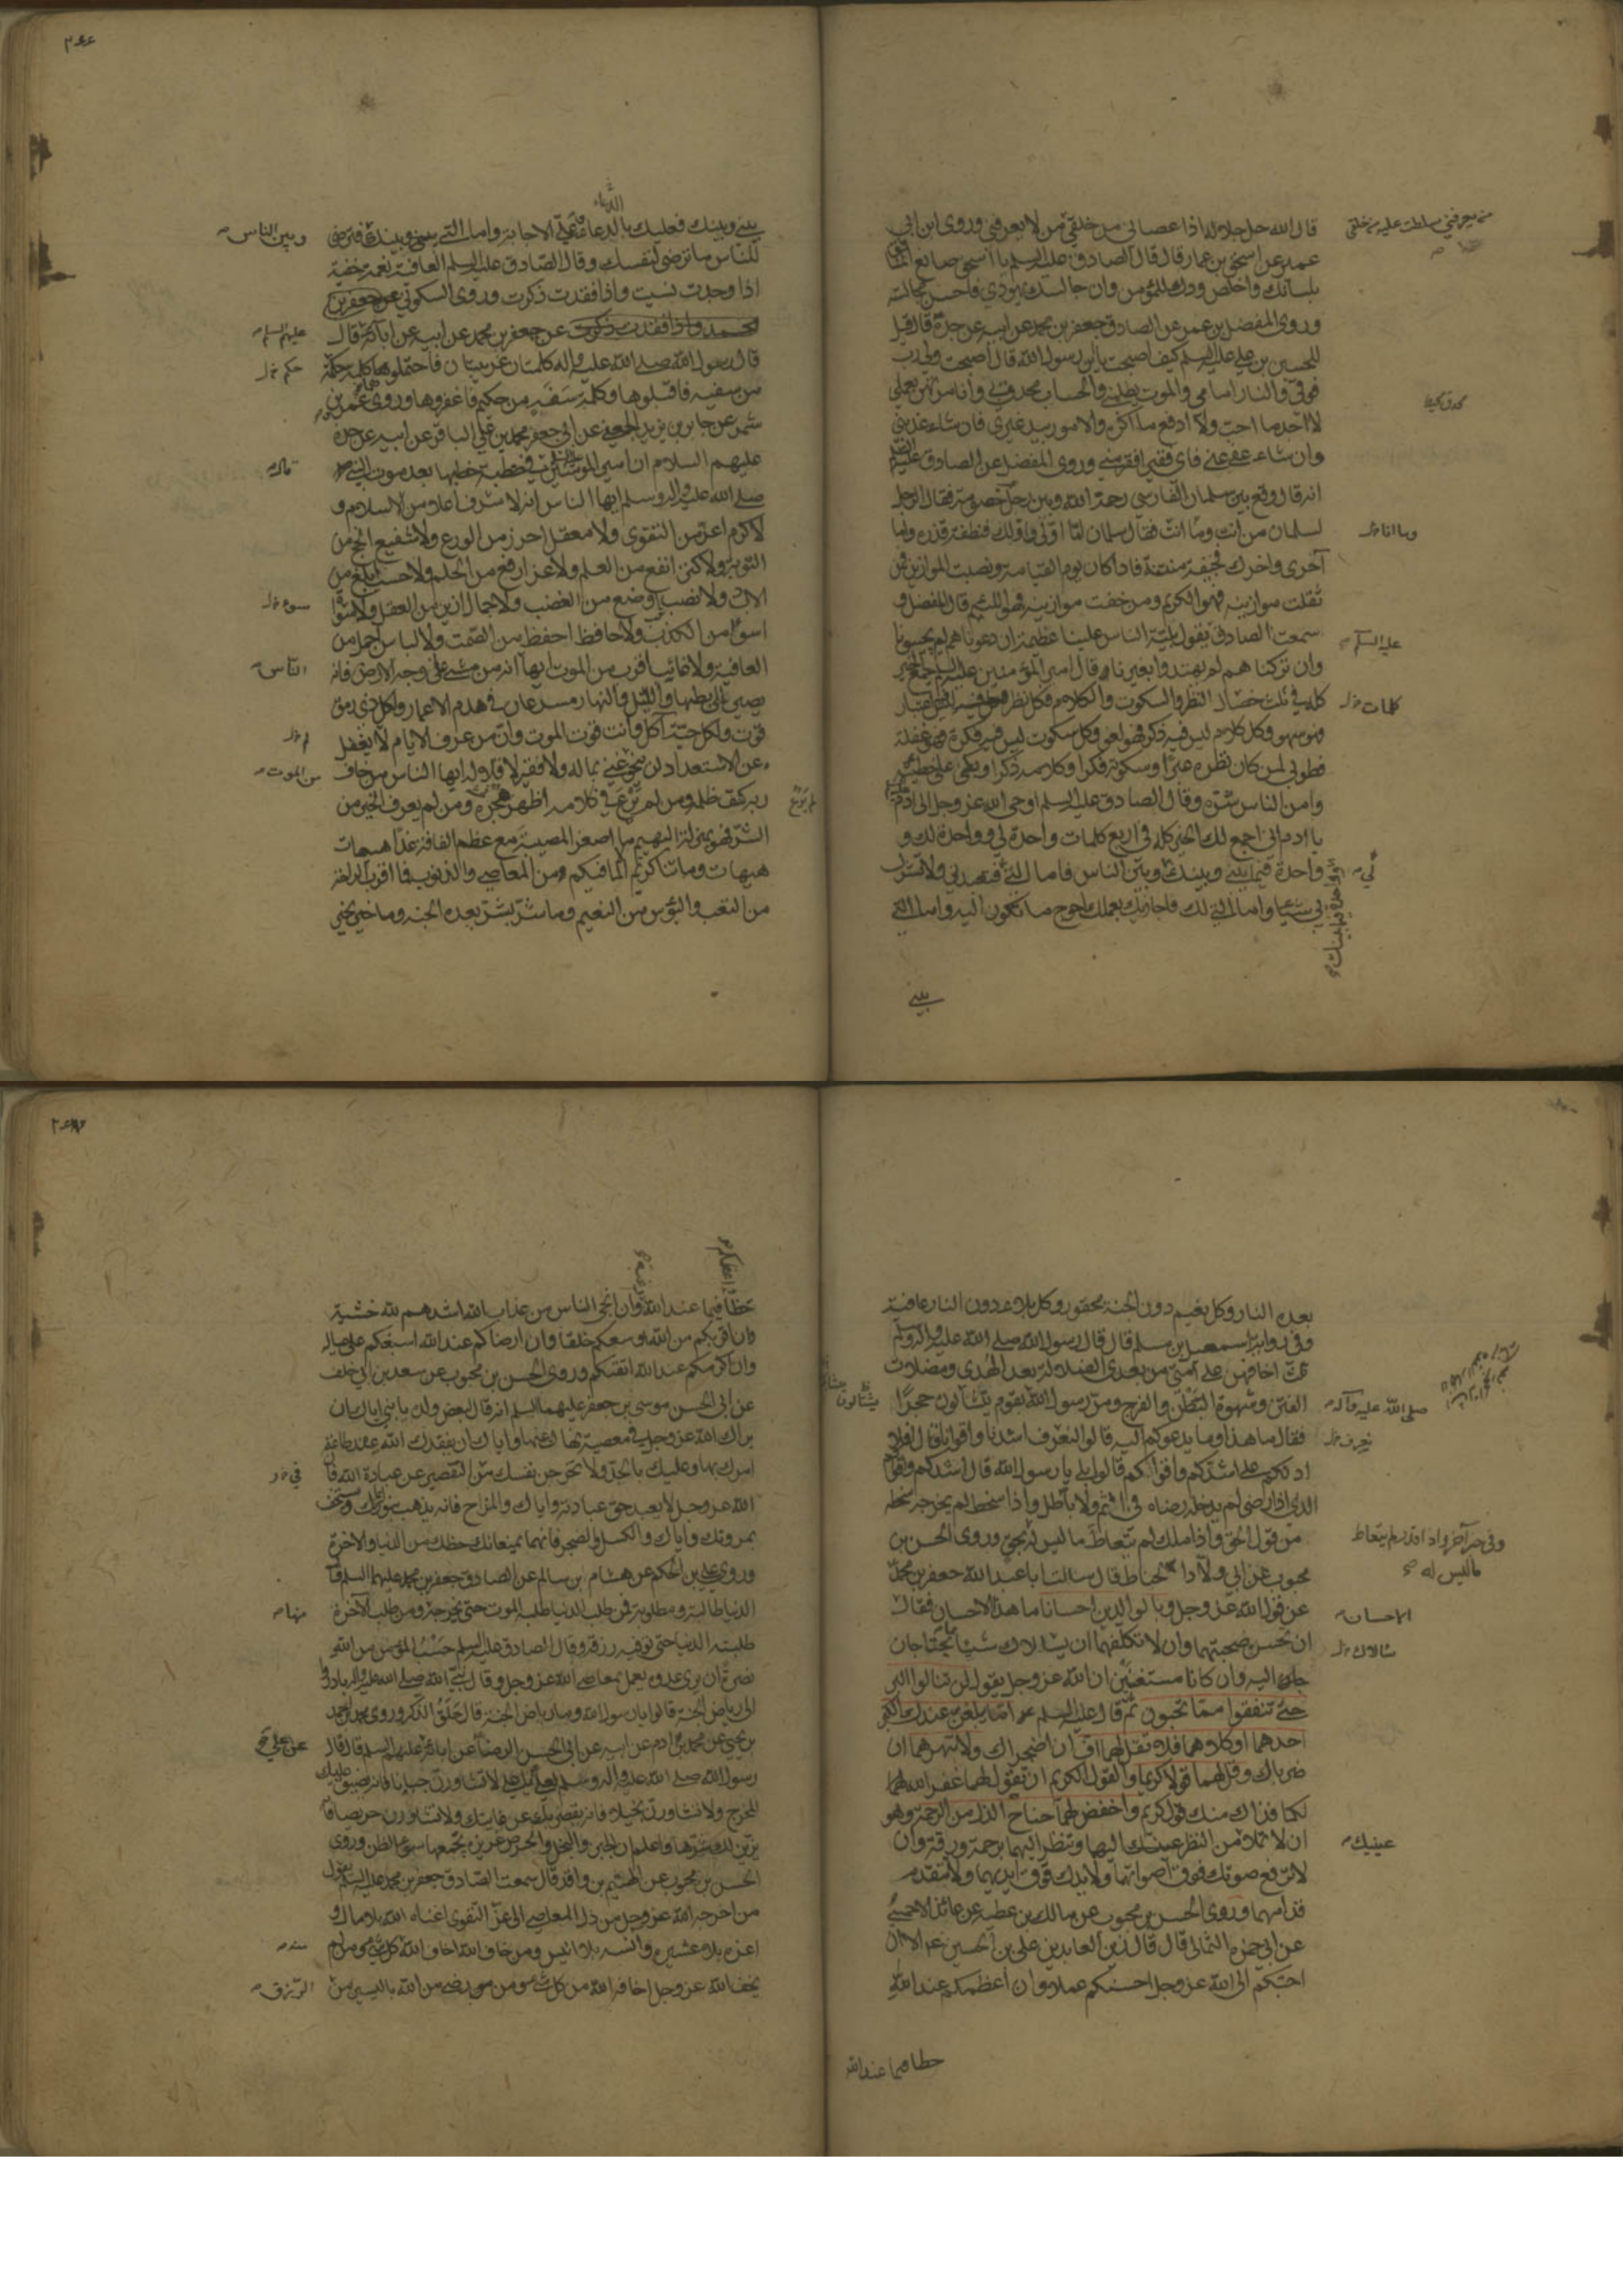 قال الله جل جلاله اذا عصانى من خلقى من لا يعرفنى وروى ابن ابي
عمير عن اسحق بن عمار قال قال الصادق عليه السلم يا اسحق صانع المنافق
بلسانك واخلص ودك للمؤمن وان جالسك يهودي فاحسن مجالسته
وروى المفضل بن عمر عن الصادق جعفر بن محمد عن ابيه عن جده قال قيل
للحسين بن علي عليه السلم كيف اصبحت يا بن رسول الله قال اصبحت ولي رب
فوقي والنار امامي والموت يطلبني والحساب محدق بي وانا مرتهن بعملي
لا اجد ما احب ولا ادفع ما اكره والامور بيد غيري فان شاء عذبني
وان شاء عفى عني فاي فقير افقر مني وروى المفضل عن الصادق عليه السلم
انه قال وقع بين سلمان الفارسي رحمة الله وبين رجل خصومة فقال الرجل
لسلمان من انت وما انت فقال سلمان اما اولي واولك فنطفة قذرة واما
آخري واخرك فجيفة منتنة فاذا كان يوم القيامة ونصبت الموازين فمن
ثقلت موازينه فهو الكريم ومن خفت موازينه فهو اللئيم قال المفضل و
سمعت الصادق يقول بلية الناس علينا عظيمة ان دعوناهم لم يجيبونا
وان تركناهم لم يهتدوا بغيرنا وقال امير المؤمنين عليه السلم جمع الخير
كله في ثلث خصال النظر والسكوت والكلام فكل نظر ليس فيه اعتبار
فهو سهو وكل كلام ليس فيه ذكر فهو لغو وكل سكوت ليس فيه فكرة فهو غفلة
فطوبى لمن كان نظره عبرا وسكوته فكرا وكلامه ذكرا وبكى على خطيئته
وامن الناس شره وقال الصادق عليه السلم اوحى الله عز وجل الى آدم
يا ادم اني اجمع لك الخير كله في اربع كلمات واحدة لي وواحدة لك و
واحدة فيما بيني وبينك وبين الناس فاما التي لي فتعبدني ولا تشرك
بي شيئا واما التي لك فاجازيك بعملك احوج ما تكون اليه واما التي
بيني
من يعرفني سلطت عليه من خلقي
وما انا خ ل
عليه السلم
كلمات خ ل
بيني وبينك فعليك بالدعاء وعلي الاجابة واما التي بينك فترضى
للناس ما ترضى لنفسك وقال الصادق عليه السلم العافية نعمة خفية
اذا وجدت نسيت واذا فقدت ذكرت وروى السكوني عن جعفر بن
محمد واذا فقدت ذكرت عن جعفر بن محمد عن ابيه عن آبائه قال
قال رسول الله صلى الله عليه واله كلمتان غريبتان فاحتملوها كلمة حكمة
من سفيه فاقبلوها وكلمة سفه من حكيم فاغفروها وروى عمرو بن
شمر عن جابر بن يزيد الجعفي عن ابي جعفر محمد بن علي الباقر عن ابيه عن جده
عليهم السلام ان امير المومنين قال في خطبة خطبها بعد موت النبي
صلى الله عليه واله وسلم ايها الناس انه لا شرف اعلا من الاسلام و
لا كرم اعز من التقوى ولا معقل احرز من الورع ولا شفيع انجح من
التوبة ولا كنز انفع من العلم ولا عز ارفع من الحلم ولا حسب ابلغ من
الادب ولا نصب اوضع من الغضب ولا جمال ازين من العقل ولا سوأة
اسوأ من الكذب ولا حافظ احفظ من الصمت ولا لباس اجمل من
العافية ولا غائب اقرب من الموت ايها انه من مشى على وجه الارض فانه
يصير الى بطنها والليل والنهار مسرعان في هدم الاعمار ولكل ذي رمق
قوت ولكل حبة آكل وانت قوت الموت وان من عرف الايام لا يغفل
عن الاستعداد لن ينجو غني بماله ولا فقير لاقلاله ايها الناس من خاف
ربه كف ظلمه ومن لم يرع في كلامه اظهر هجره ومن لم يعرف الخير من
الشر فهو بمنزلة البهيم ما اصغر المصيبة مع عظم الفاقة غدا هيهات
هيهات وما تناكرتم الا لما فيكم من المعاصي والذنوب فما اقرب الراحة
من التعب والبؤس من النعيم وما شر بشر بعده الجنة وما خير بخير
وبين الناس
عليهم السلم
حكم خ ل
الناس
لم خ ل
من الموت
بعده النار وكل نعيم دون الجنة محقور وكل بلاء دون النار عافية
وفى رواية اسمعيل بن مسلم قال قال رسول الله صلى الله عليه واله وسلم
ثلث اخافهن على امتي من بعدي الضلالة بعد الهدى ومضلات
الفتن وشهوة البطن والفرج ومر رسول الله بقوم يتشالون حجرا
فقال ما هذا وما يدعوكم اليه قالوا لنعرف اشدنا واقوانا قال افلا
ادلكم على اشدكم واقواكم قالوا بلى يا رسول الله قال اشدكم واقواكم
الذى اذا رضى لم يدخله رضاه في اثم ولا باطل واذا سخط لم يخرجه سخطه
من قول الحق واذا ملك لم يتعاط ما ليس له بحق وروى الحسن بن
محبوب عن ابي ولاد الحناط قال سالت ابا عبد الله جعفر بن محمد
عن قول الله عز وجل وبالوالدين احسانا ما هذا الاحسان فقال
ان تحسن صحبتهما وان لا تكلفهما ان يسالاك شيئا يحتاجان
اليه وان كانا مستغنيين ان الله عز وجل يقول لن تنالوا البر
حتى تنفقوا مما تحبون ثم قال عليه السلم اما يبلغن عندك الكبر
احدهما او كلاهما فلا تقل لهما اف ان اضجراك ولا تنهرهما ان
ضرباك وقل لهما قولا كريما والقول الكريم ان تقول لهما غفر الله لهما
لكما فذاك منك قول كريم واخفض لهما جناح الذل من الرحمة وهو
ان لا تملا من النظر عينك اليهما وتنظر اليهما برحمة ورقة وان
لا ترفع صوتك فوق اصواتهما ولا يدك فوق ايديهما ولا تتقدم
قدامهما وروى الحسن بن محبوب عن مالك بن عطية عن عائذ الاحمسي
عن ابي حمزة الثمالي قال قال زين العابدين علي بن الحسين الا ان
احبكم الى الله عز وجل احسنكم عملا وان اعظمكم عند الله
حظا فيما عند الله
صلى الله عليه وآله
وفى خبر آخر واذا قدر لم يتعاط
ما ليس له
الاحسان
عينيك
حظا فيما عند الله وان انجى الناس من عذاب الله اشدهم لله خشية
وان اقربكم من الله اوسعكم خلقا وان ارضاكم عند الله اسبغكم على عياله
وان اكرمكم عند الله اتقيكم وروى الحسن بن محبوب عن سعد بن ابي خلف
عن ابي الحسن موسى بن جعفر عليهما السلم انه قال لبعض ولده يا بني اياك ان
يراك الله عز وجل في معصية نهاك عنها واياك ان يفقدك الله عند طاعة
امرك بها وعليك بالجد ولا تخرجن نفسك من التقصير عن عبادة الله فان
الله عز وجل لا يعبد حق عبادته واياك والمزاح فانه يذهب بنور ايمانك ويستخف
بمروتك واياك والكسل والضجر فانهما يمنعانك حظك من الدنيا والاخرة
وروى علي بن الحكم عن هشام بن سالم عن الصادق جعفر بن محمد عليهما السلم قال
الدنيا طالبة ومطلوبة فمن طلب الدنيا طلبه الموت حتى يخرجه ومن طلب الآخرة
طلبته الدنيا حتى توفيه رزقه وقال الصادق عليه السلم حسب المؤمن من الله
نصرة ان يرى عدوه يعمل بمعاصي الله عز وجل وقال نبي الله صلى الله عليه واله بادروا
الى رياض الجنة قالوا يا رسول الله وما رياض الجنة قال حلق الذكر وروى محمد بن احمد
بن يحيى عن محمد بن آدم عن ابيه عن ابي الحسن الرضا عن ابائه عليهم السلم قال قال
رسول الله صلى الله عليه واله وسلم يا علي لا تشاورن جبانا فانه يضيق عليك
المخرج ولا تشاورن بخيلا فانه يقصر بك عن غايتك ولا تشاورن حريصا فانه
يزين لك شرها واعلم ان الجبن والبخل والحرص غريزة يجمعها سوء الظن وروى
الحسن بن محبوب عن الهيثم بن واقد قال سمعت الصادق جعفر بن محمد عليه السلم يقول
من اخرجه الله عز وجل من ذل المعاصي الى عز التقوى اغناه الله بلا مال و
اعزه بلا عشيرة وانسه بلا انيس ومن خاف الله اخاف الله كل شيء ومن لم
يخف الله عز وجل اخافه الله من كل شيء ومن رضى من الله باليسير من
منها
عن علي
منه
الرزق